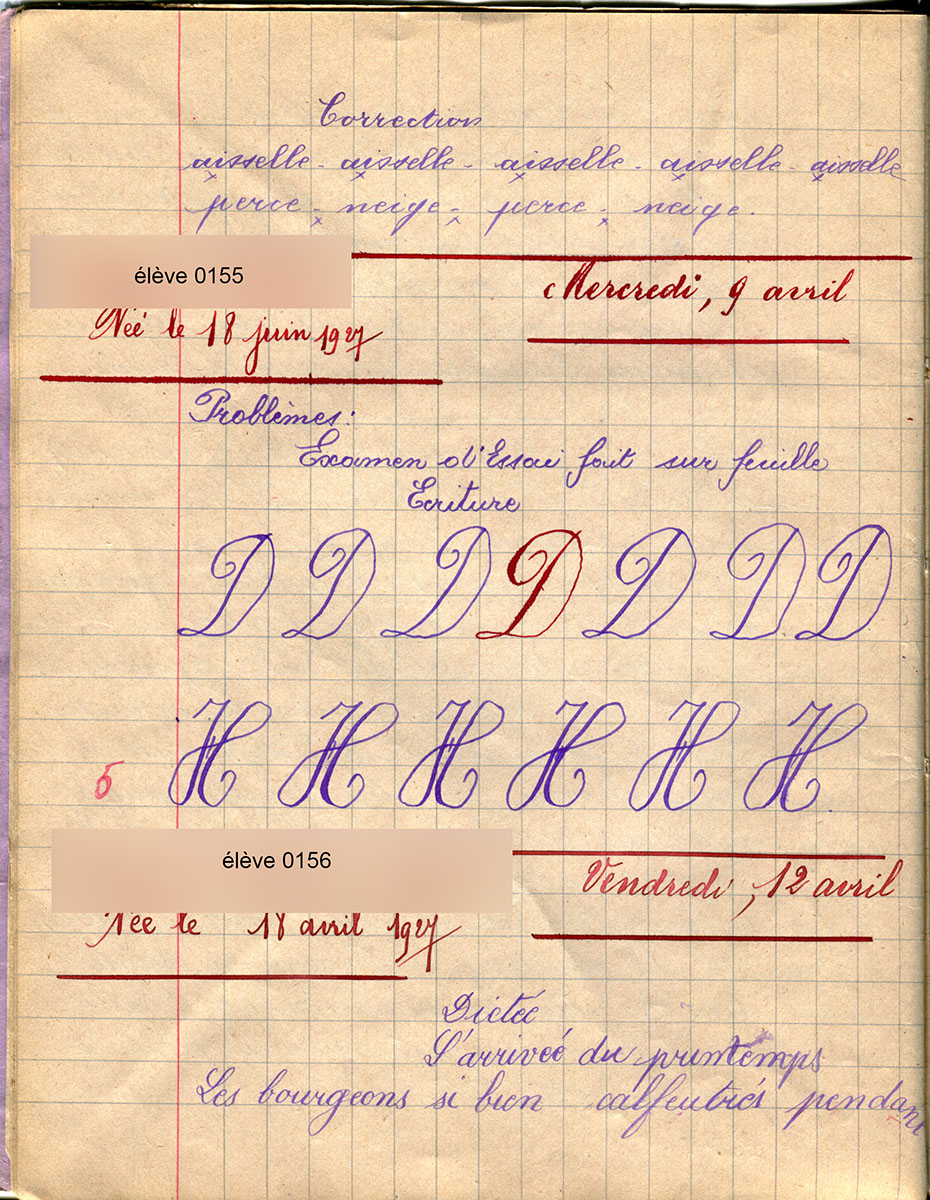 Correction
aisselle - aisselle - aisselle - aisselle - aisselle
perce - neige - perce - neige.
élève 0155
Mercredi, 9 avril
Née le 18 juin 1927
Problèmes:
Examen d'Essai fait sur feuille
Ecriture
D D D D D D D
H H H H H H
6
élève 0156
Vendredi, 12 avril
Née le 18 avril 1927
Dictée
L'arrivée du printemps
Les bourgeons si bien calfeutrés pendant